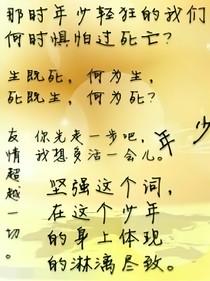 那时年少轻狂的我们
何时惧怕过死亡?
生既死，何为生，
死既生，何为死?
友情超越一切。
你先走一步吧，
我想多活一会儿。
年少
坚强这个词，
在这个少年
的身上体现
的淋漓尽致。